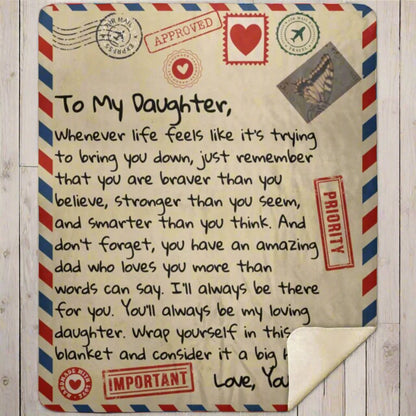 AIR MAIL
EXPRESS
APPROVED
AIR MAIL
TRAVEL
To My Daughter,
Whenever life feels like it's trying
to bring you down, just remember
that you are braver than you
believe, stronger than you seem,
and smarter than you think. And
don't forget, you have an amazing
dad who loves you more than
words can say. I'll always be there
for you. You'll always be my loving
daughter. Wrap yourself in this
blanket and consider it a big
PRIORITY
HANDMADE WITH LOVE
IMPORTANT
Love,